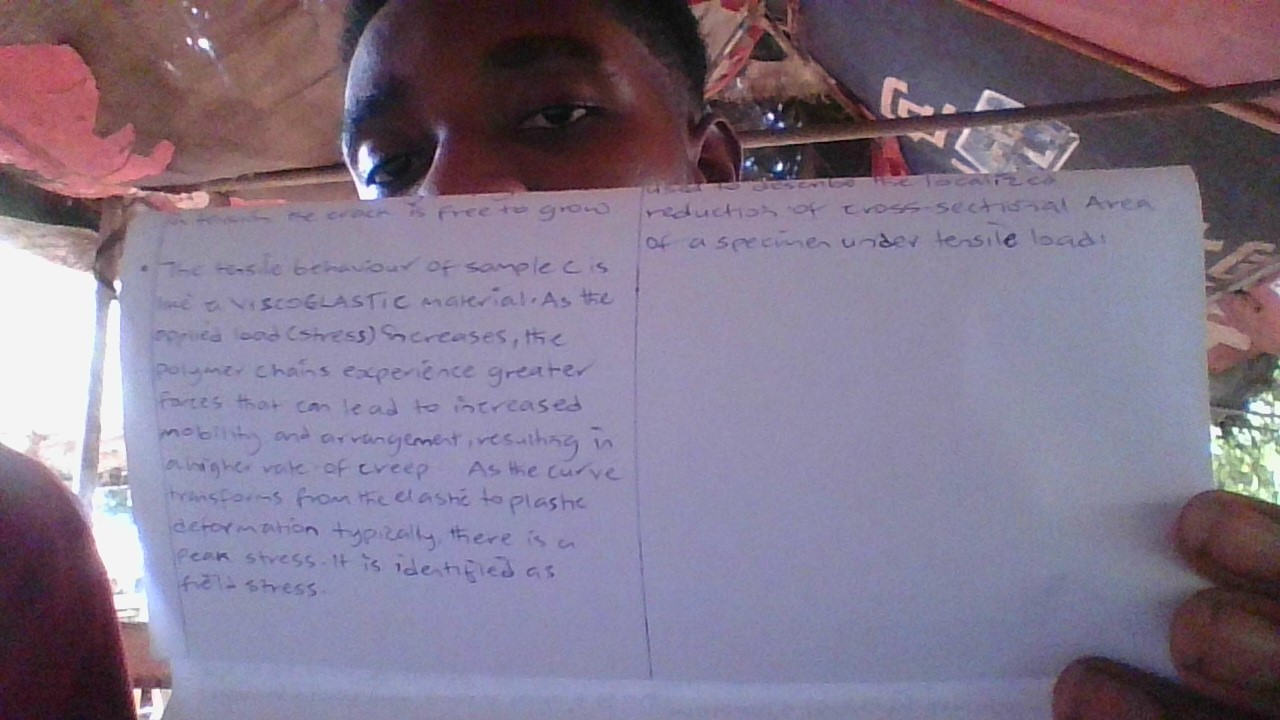 the crack is free to grow
• The tensile behaviour of sample C is
like a VISCOELASTIC material. As the
applied load (stress) increases, the
polymer chains experience greater
forces that can lead to increased
mobility and arrangement, resulting in
a higher rate of creep As the curve
transforms from the elastic to plastic
deformation typically, there is a
peak stress. It is identified as
stress.
used to describe the localized
reduction of cross-sectional Area
of a specimen under tensile load.